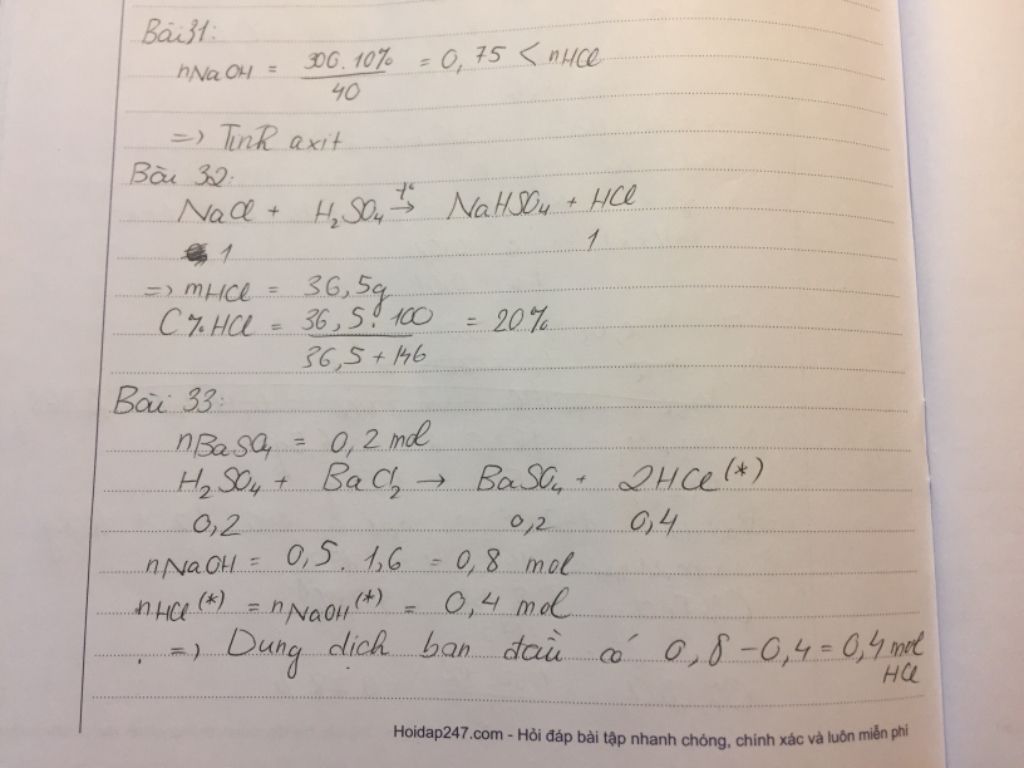 Bài 31:
nNaOH = 300.10% / 40 = 0,75 < nHCl
=> Tính axit
Bài 32:
NaCl + H2SO4 t°→ NaHSO4 + HCl
1 1
=> mHCl = 36,5g
C% HCl = 36,5.100 / 36,5+146 = 20%
Bài 33:
nBaSO4 = 0,2 mol
H2SO4 + BaCl2 → BaSO4 + 2HCl (*)
0,2 0,2 0,4
nNaOH = 0,5.1,6 = 0,8 mol
nHCl (*) = nNaOH (*) = 0,4 mol
=> Dung dịch ban đầu có 0,8-0,4=0,4 mol
HCl
Hoidap247.com - Hỏi đáp bài tập nhanh chóng, chính xác và luôn miễn phí